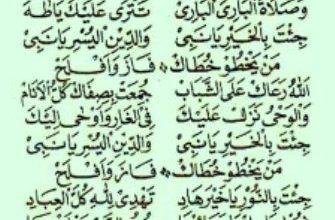 وَصَلَاةُ الْبَارِئِ الْبَارِئ تَتْرَى عَلَيْكَ يَاطٰهَ
جِئْتَ بِالْخَيْرِ يَانَبِى وَالدِّيْنِ الْيُسْرِ يَانَبِى
مَنْ يَخْطُوْ خُطَاكَ فَازَ وَاَفْلَحَ
اَللهُ رَعَاكَ عَلَى الشَّبَابِ جُمِعَتْ بِصِفَاكَ كُلُّ الْاَنَامِ
وَالْوَحْىُ نَزَلَ عَلَيْكَ فِى الْغَارِ وَاَوْحٰى اِلَيْكَ
جِئْتَ بِالْخَيْرِ يَانَبِى وَالدِّيْنِ الْيُسْرِ يَانَبِى
مَنْ يَخْطُوْ خُطَاكَ فَازَ وَاَفْلَحَ
جِئْتَ بِالنُّوْرِ يَاخَيْرَ هَادٍ تَهْدِى لِلّٰهِ كُلَّ الْعِبَادِ